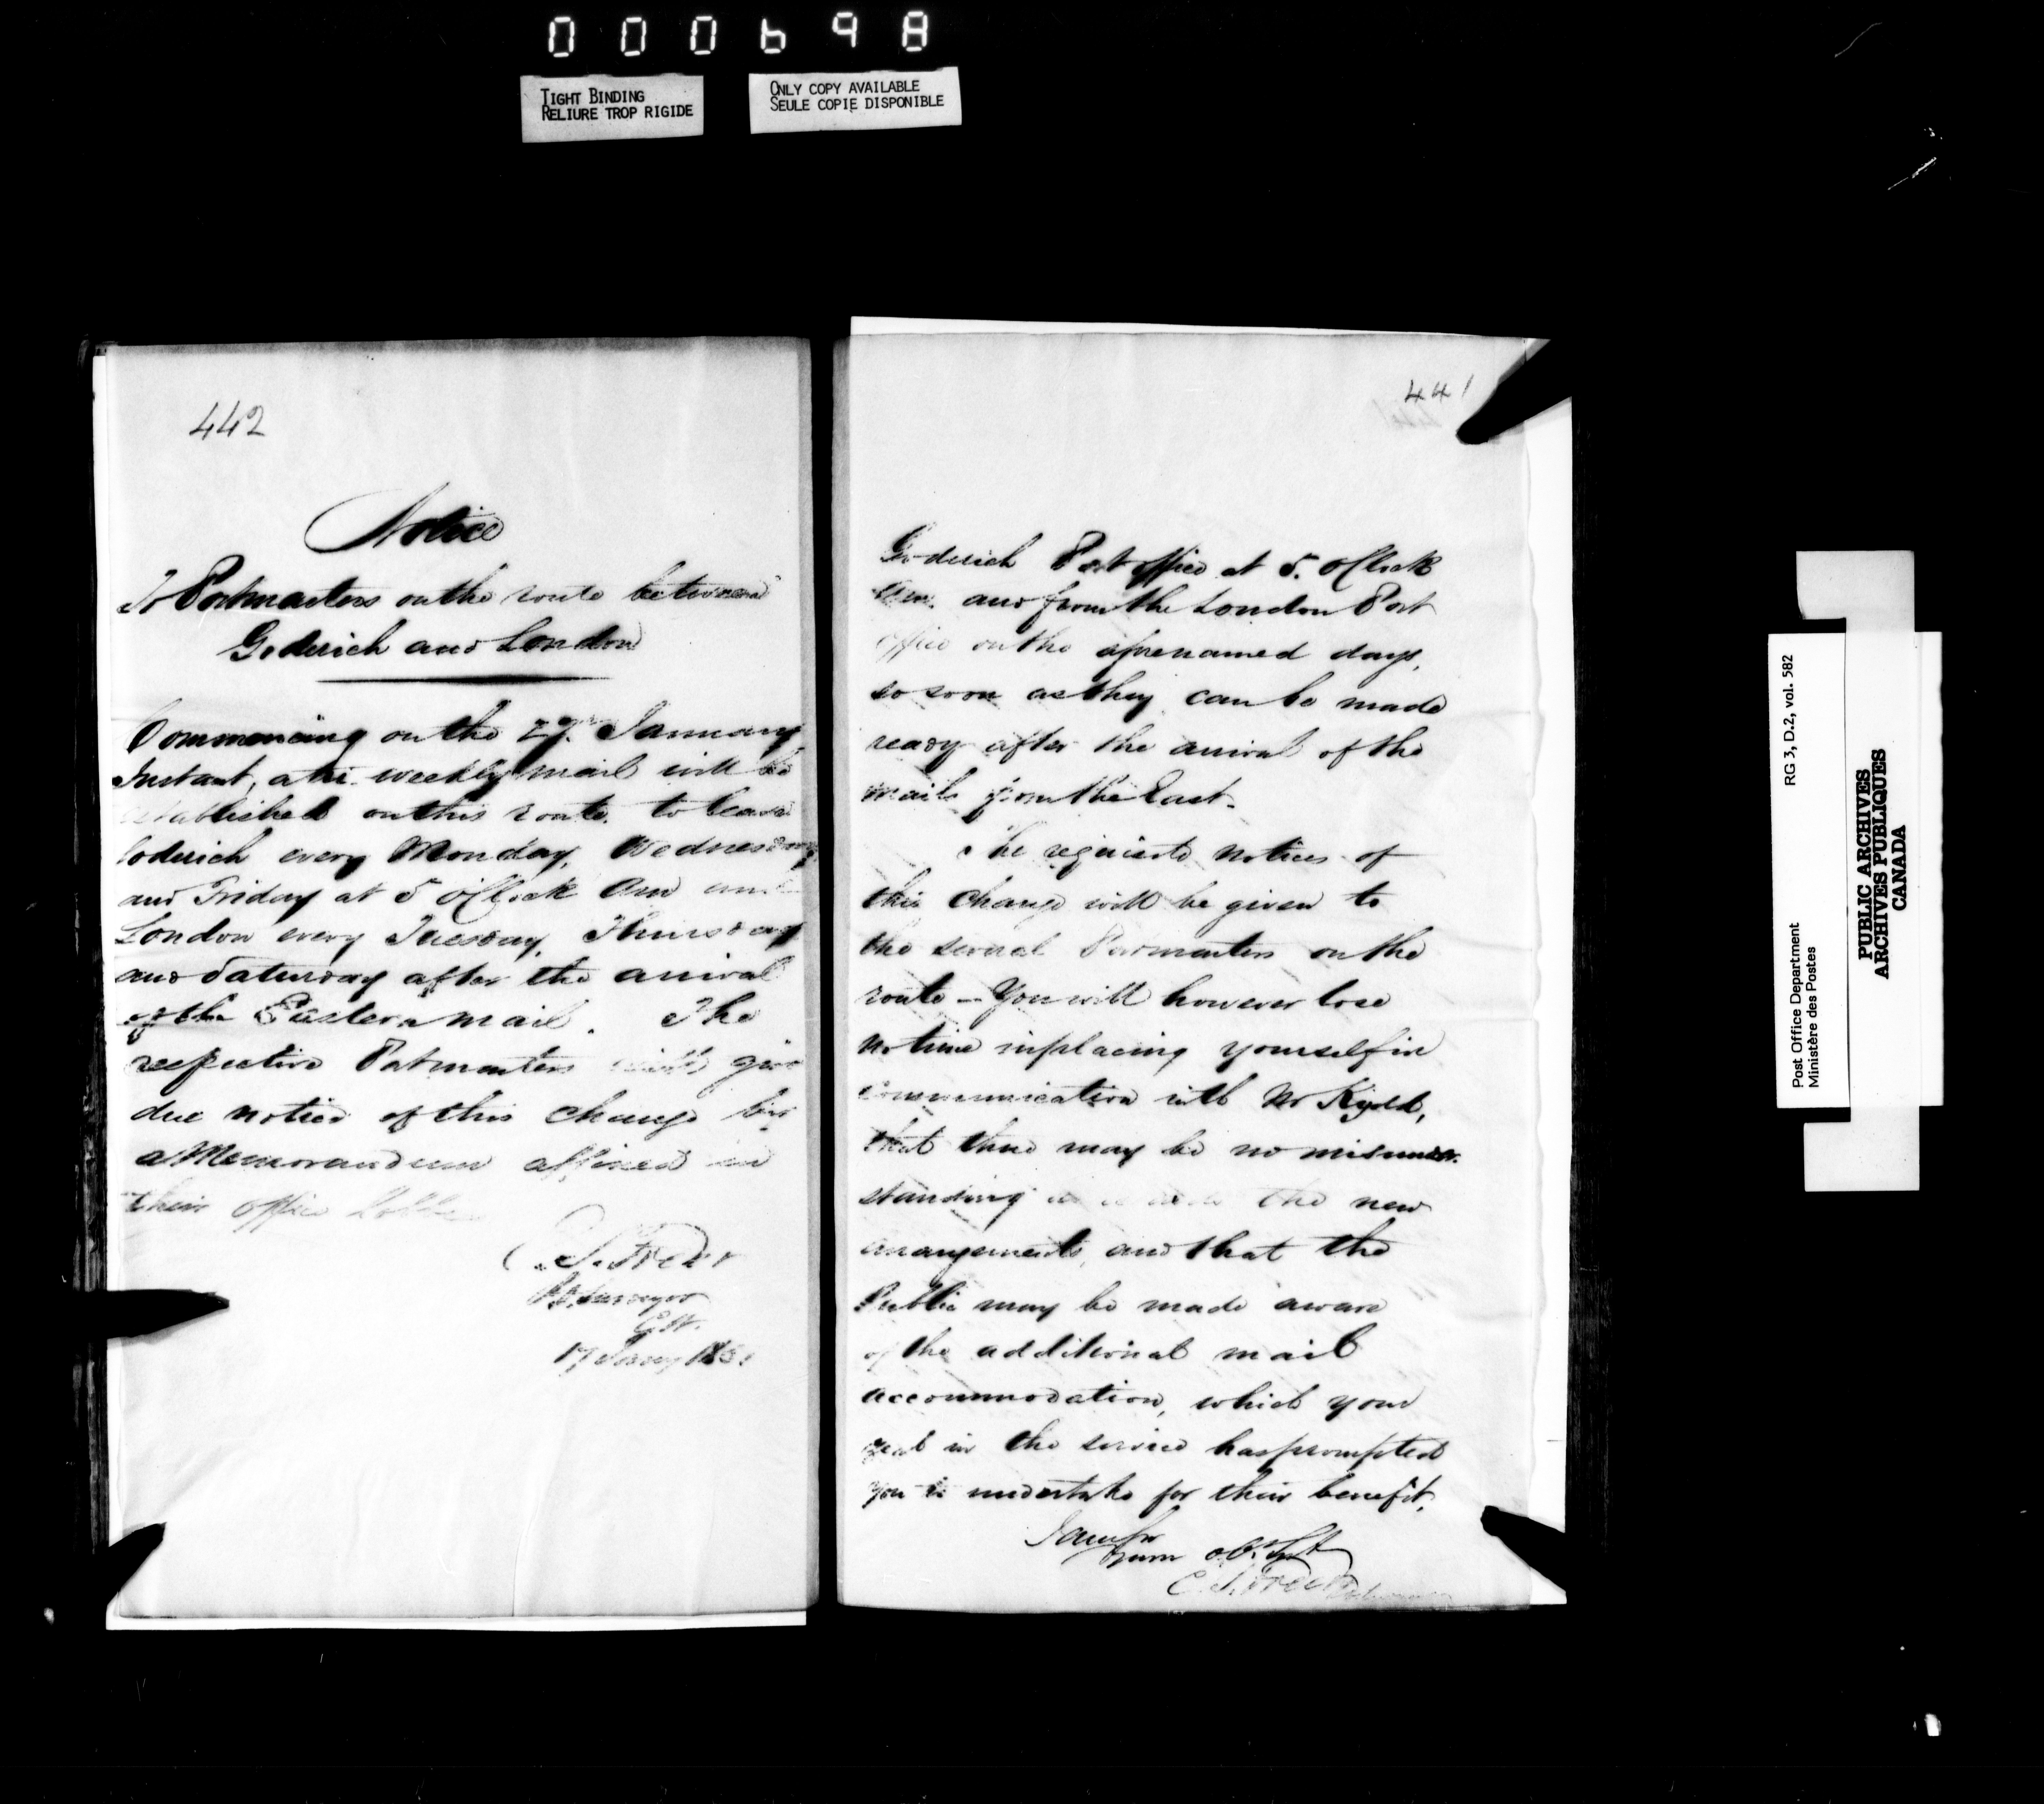 000698
TIGHT BINDING
RELIURE TROP RIGIDE
ONLY COPY AVAILABLE
SEULE COPIE DISPONIBLE
442
Notice
To Postmasters on the route between
Goderich and London
Commencing on the 27th January
Instant, a tri-weekly mail will be
established on this route. to leave
Goderich every Monday, Wednesday
and Friday at 5 o'Clock am and
London every Tuesday, Thursday
and Saturday after the arrival
of the Eastern mail. The
respective Postmasters will give
due notice of this change by
a Memorandum affixed in
their office
P.O. Surveyor
C.W.
17 Jany 185
441
Goderich Post office at 5. o'Clock
am. and from the London Post
office on the aforenamed days,
so soon as they can be made
ready after the arrival of the
mails from the East.
The requisite notices of
this change will be given to
the several Postmasters on the
route – You will however lose
no time in placing yourself in
communication with Mr Kydd,
that there may be no misunder-
standing the new
arrangements, and that the
Public may be made aware
of the additional mail
accommodation, which your
zeal in the service has prompted
you to undertake for their benefit.
I am Sir
Your ob. St
Post Office Department
Ministère des Postes
RG 3, D.2, vol. 582
PUBLIC ARCHIVES
ARCHIVES PUBLIQUES
CANADA